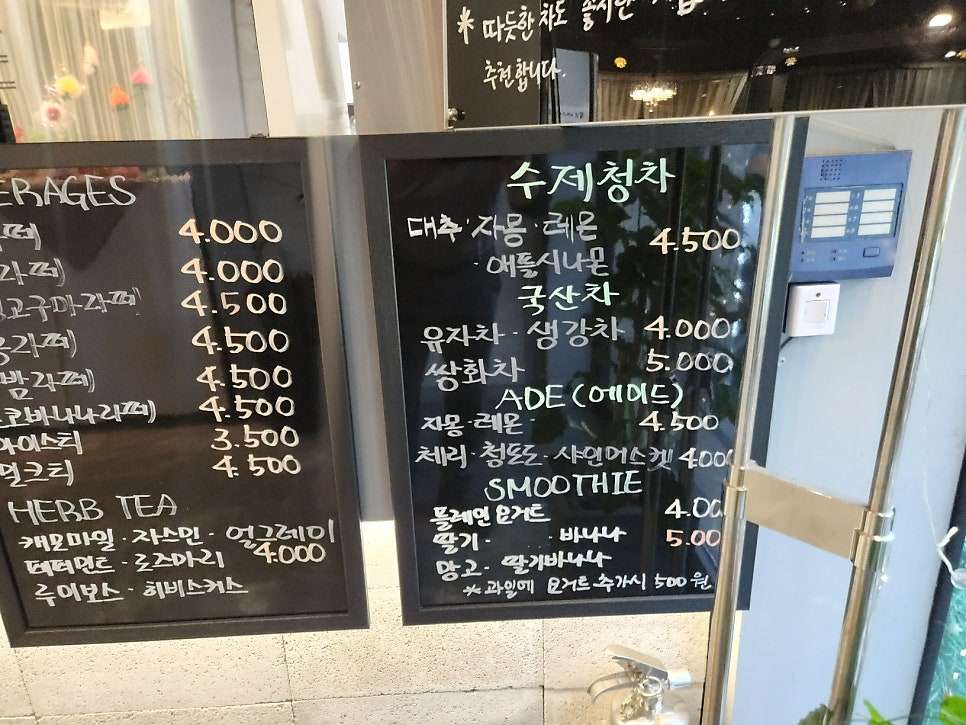 * 따뜻한 차도
추천합니다.
4.000
4.000
4.500
4.500
4.500
4.500
아이스티 3.500
밀크티 4.500
HERB TEA
캐모마일 · 자스민 · 얼그레이
페퍼민트 · 로즈마리 4.000
루이보스 · 히비스커스
수제청차
대추 · 자몽 · 레몬 4.500
· 애플시나몬
국산차
유자차 · 생강차 4.000
쌍화차 5.000
ADE (에이드)
자몽 · 레몬 · 4.500
체리 · 청포도 · 샤인머스켓
SMOOTHIE
플레인 요거트
딸기 · 바나나
망고 · 딸기바나나
* 과일에 요거트 추가시 500원